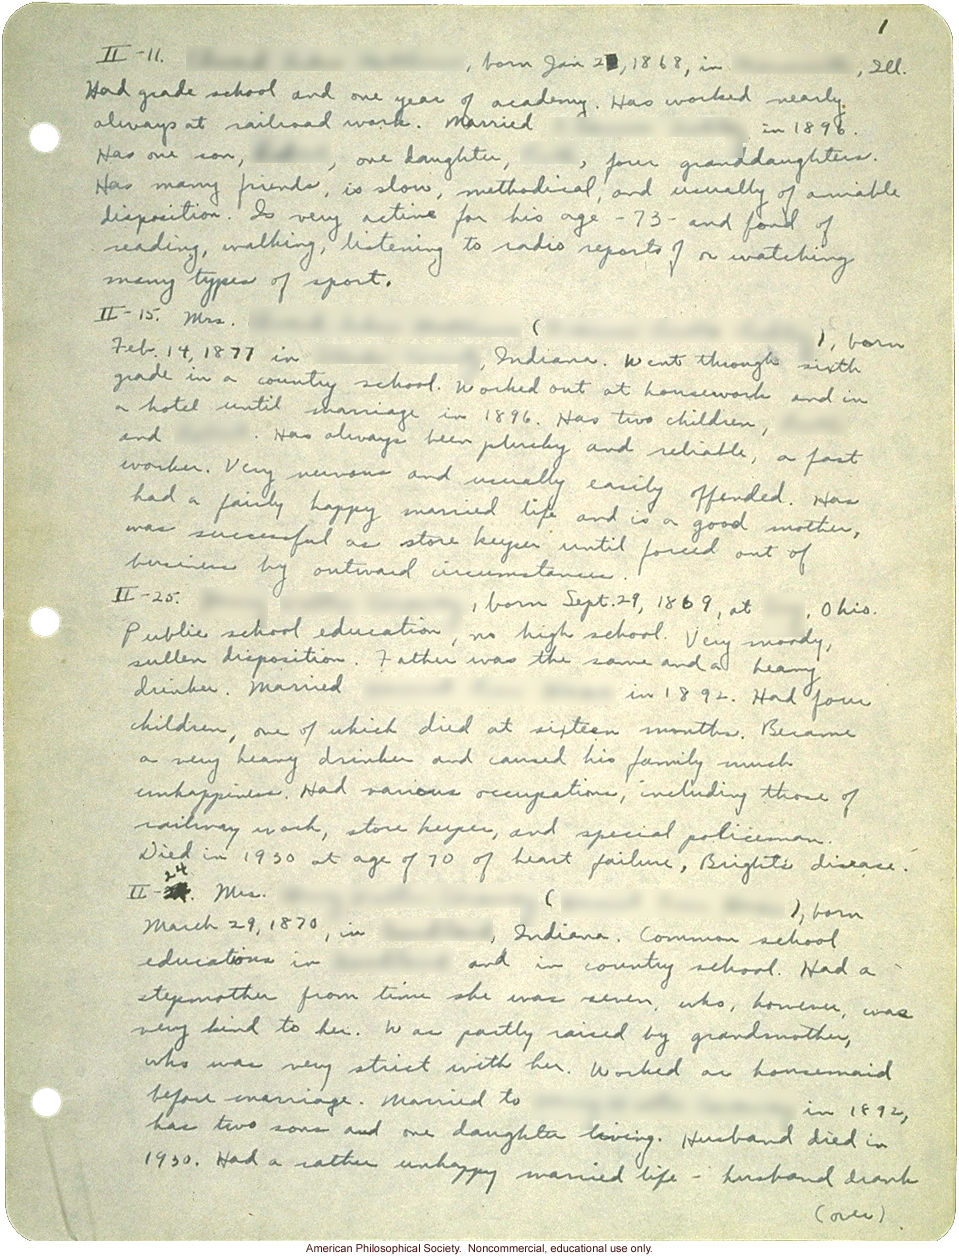 1
II-11. , born Jan 2, 1868, in , Ill.
Had grade school and one year of academy. Has worked nearly
always at railroad work. Married in 1896.
Has one son, , one daughter, , four granddaughters.
Has many friends, is slow, methodical, and usually of amiable
disposition. Is very active for his age -73- and fond of
reading, walking, listening to radio reports of or watching
many types of sport.
II-15. Mrs. ( ), born
Feb. 14, 1877 in , Indiana. Went through sixth
grade in a country school. Worked out at housework and in
a hotel until marriage in 1896. Has two children,
and . Has always been plucky and reliable, a fast
worker. Very nervous and usually easily offended. Has
had a fairly happy married life and is a good mother,
was successful as store keeper until forced out of
business by outward circumstances.
II-25. , born Sept. 29, 1869, at , Ohio.
Public school education, no high school. Very moody,
sullen disposition. Father was the same and a heavy
drinker. Married in 1892. Had four
children, one of which died at sixteen months. Became
a very heavy drinker and caused his family much
unhappiness. Had various occupations, including those of
railway work, store keeper, and special policeman.
Died in 1930 at age of 70 of heart failure, Bright's disease.
II-24. Mrs. ( ), born
March 29, 1870, in , Indiana. Common school
educations in and in country school. Had a
stepmother from time she was seven, who, however, was
very kind to her. Was partly raised by grandmother,
who was very strict with her. Worked as housemaid
before marriage. Married to in 1892,
has two sons and one daughter living. Husband died in
1930. Had a rather unhappy married life - husband drank
(over)
American Philosophical Society. Noncommercial, educational use only.